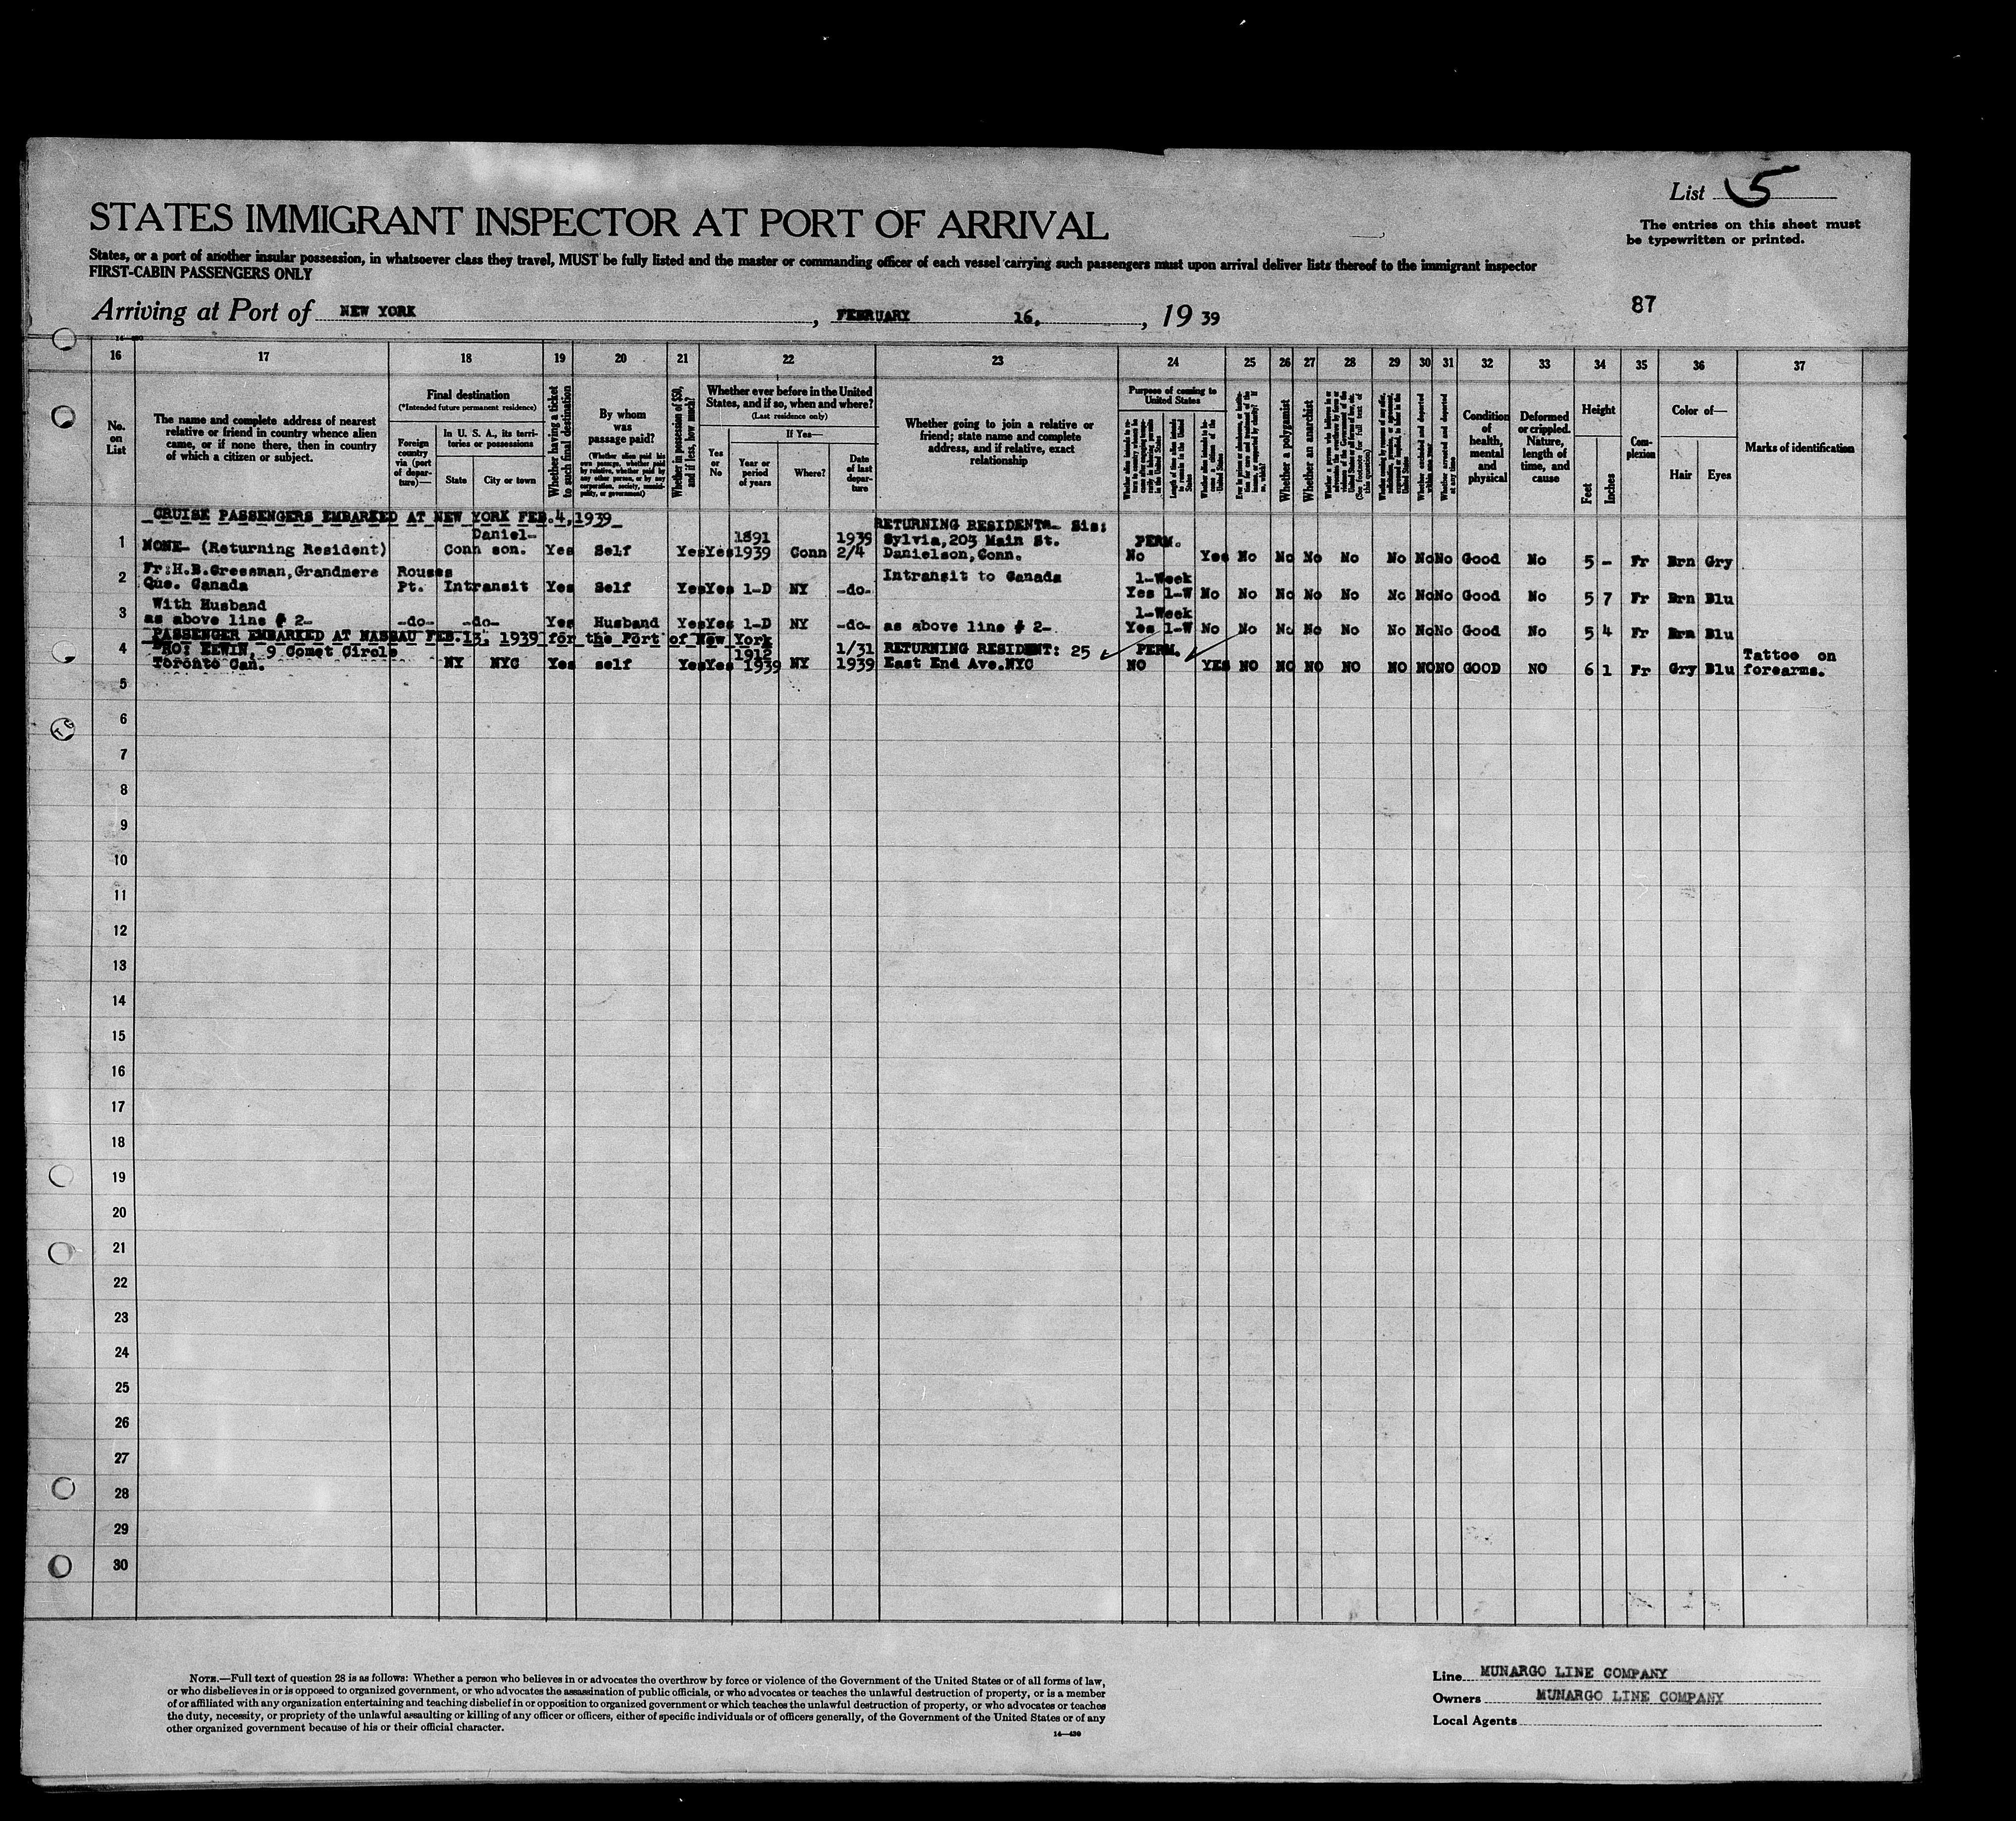 List 5
The entries on this sheet must
be typewritten or printed.
STATES IMMIGRANT INSPECTOR AT PORT OF ARRIVAL
States, or a port of another insular possession, in whatsoever class they travel, MUST be fully listed and the master or commanding officer of each vessel carrying such passengers must upon arrival deliver lists thereof to the immigrant inspector
FIRST-CABIN PASSENGERS ONLY
87
Arriving at Port of NEW YORK, FEBRUARY 16, 1939
16 17 18 19 20 21 22 23 24 25 26 27 28 29 30 31 32 33 34 35 36 37
No. on List
The name and complete address of nearest
relative or friend in country whence alien
came, or if none there, then in country
of which a citizen or subject.
Final destination
(*Intended future permanent residence)
Foreign country via (port of departure)—
In U. S. A., its territories or possessions
State
City or town
Whether having a ticket to such final destination
By whom was passage paid?
(Whether alien paid his own passage, whether paid by relative, whether paid by any other person, or by any corporation, society, municipality, or government)
Whether in possession of $50, and if less, how much?
Whether ever before in the United
States, and if so, when and where?
(Last residence only)
Yes or No
If Yes—
Year or period of years
Where?
Date of last departure
Whether going to join a relative or
friend; state name and complete
address, and if relative, exact
relationship
Purpose of coming to
United States
Length of time alien intends to remain in the United States
Whether a polygamist
Whether an anarchist
Whether arrested and deported at any time
Condition of health, mental and physical
Deformed or crippled. Nature, length of time, and cause
Height
Feet
Inches
Complexion
Color of—
Hair
Eyes
Marks of identification
CRUISE PASSENGERS EMBARKED AT NEW YORK FEB.4,1939
1 NONE- (Returning Resident) Conn Danielson. Yes Self Yes Yes 1891 1939 Conn 1939 2/4 RETURNING RESIDENT- Sis: Sylvia,203 Main St. Danielson, Conn. PERM. No Yes No No No No No No No Good No 5 - Fr Brn Gry
2 Fr:H.B.Gressman, Grandmere Que. Canada Rouses Pt. Intransit Yes Self Yes Yes 1-D NY -do- Intransit to Canada 1-Week Yes 1-W No No No No No No No No Good No 5 7 Fr Brn Blu
3 With Husband as above line # 2- -do- -do- Yes Husband Yes Yes 1-D NY -do- as above line # 2- 1-Week Yes 1-W No No No No No No No No Good No 5 4 Fr Brn Blu
PASSENGER EMBARKED AT NASSAU FEB.13, 1939 for the Port of New York
4 BRO: ERWIN, 9 Comet Circle Toronto Can. NY NYC Yes self Yes Yes 1912 1939 NY 1/31 1939 RETURNING RESIDENT: 25 East End Ave.NYC PERM. NO YES NO NO NO NO NO NO NO GOOD NO 6 1 Fr Gry Blu Tattoo on forearms.
5
6
7
8
9
10
11
12
13
14
15
16
17
18
19
20
21
22
23
24
25
26
27
28
29
30
NOTE.—Full text of question 28 is as follows: Whether a person who believes in or advocates the overthrow by force or violence of the Government of the United States or of all forms of law,
or who disbelieves in or is opposed to organized government, or who advocates the assassination of public officials, or who advocates or teaches the unlawful destruction of property, or is a member
of or affiliated with any organization entertaining and teaching disbelief in or opposition to organized government or which teaches the unlawful destruction of property, or who advocates or teaches
the duty, necessity, or propriety of the unlawful assaulting or killing of any officer or officers, either of specific individuals or of officers generally, of the Government of the United States or of any
other organized government because of his or their official character.
Line MUNARGO LINE COMPANY
Owners MUNARGO LINE COMPANY
Local Agents